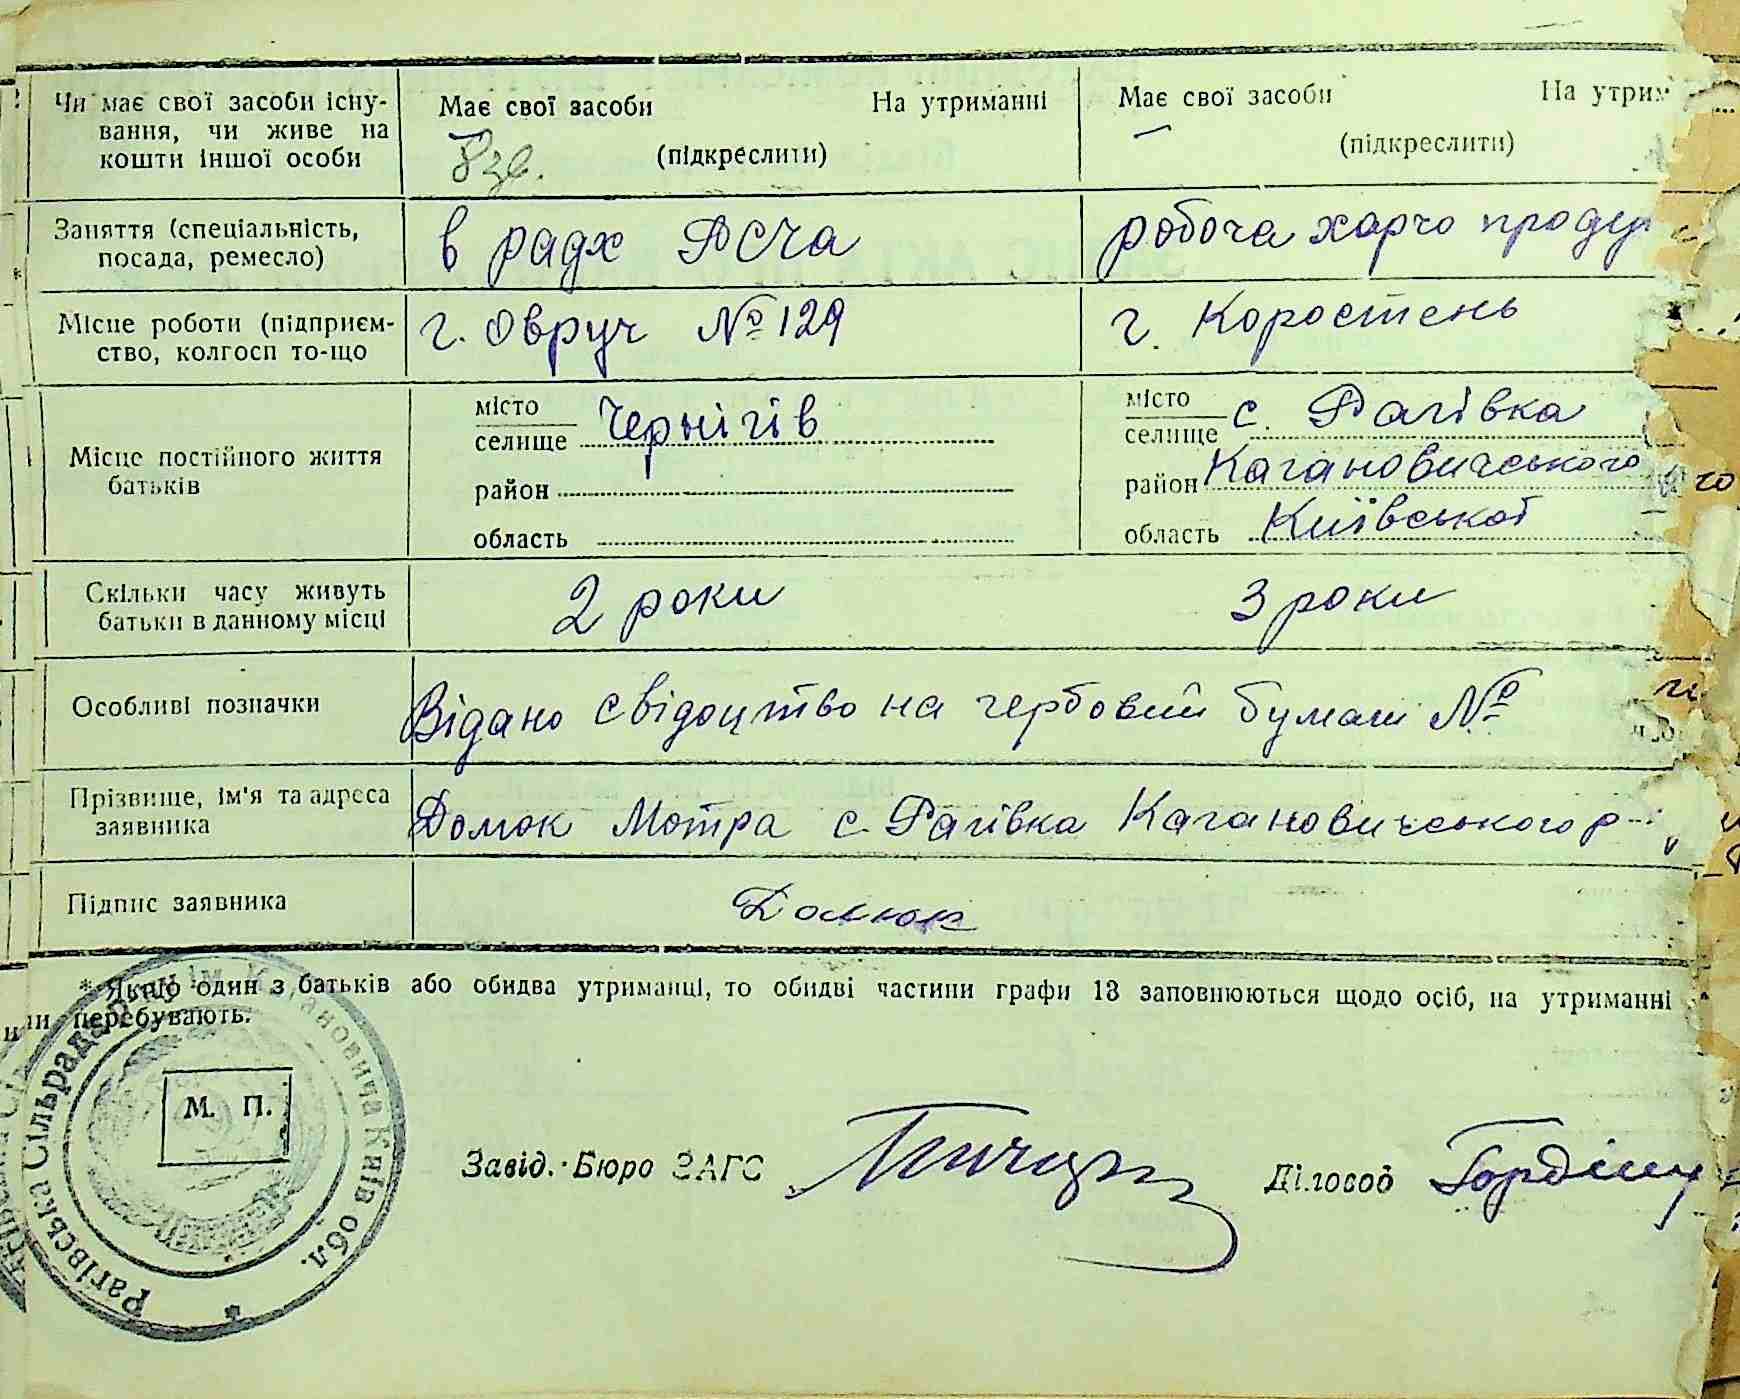 Чи має свої засоби існу-
вання, чи живе на
кошти іншої особи
Має свої засоби На утриманні
(підкреслити)
Має свої засоби На утрим
(підкреслити)
Заняття (спеціальність,
посада, ремесло)
в радх РСЧА
робоча харчо проду
Місце роботи (підприєм-
ство, колгосп то-що
г. Овруч № 129
г. Коростень
Місце постійного життя
батьків
місто
селище Чернігів
район
область
місто
селище с. Рагівка
район Кагановичського
область Київської
Скільки часу живуть
батьки в данному місці
2 роки
3 роки
Особливі позначки
Відано свідоцтво на гербовий бумаги №
Прізвище, ім'я та адреса
заявника
Домок Мотра с. Рагівка Кагановичського р-
Підпис заявника
* Якщо один з батьків або обидва утриманці, то обидві частини графи 13 заповнюються щодо осіб, на утриманні
перебувають.
М. П.
Рагівська Сільрада р-ну ім. Кагановича Київ обл.
Завід. Бюро ЗАГС
Діловод